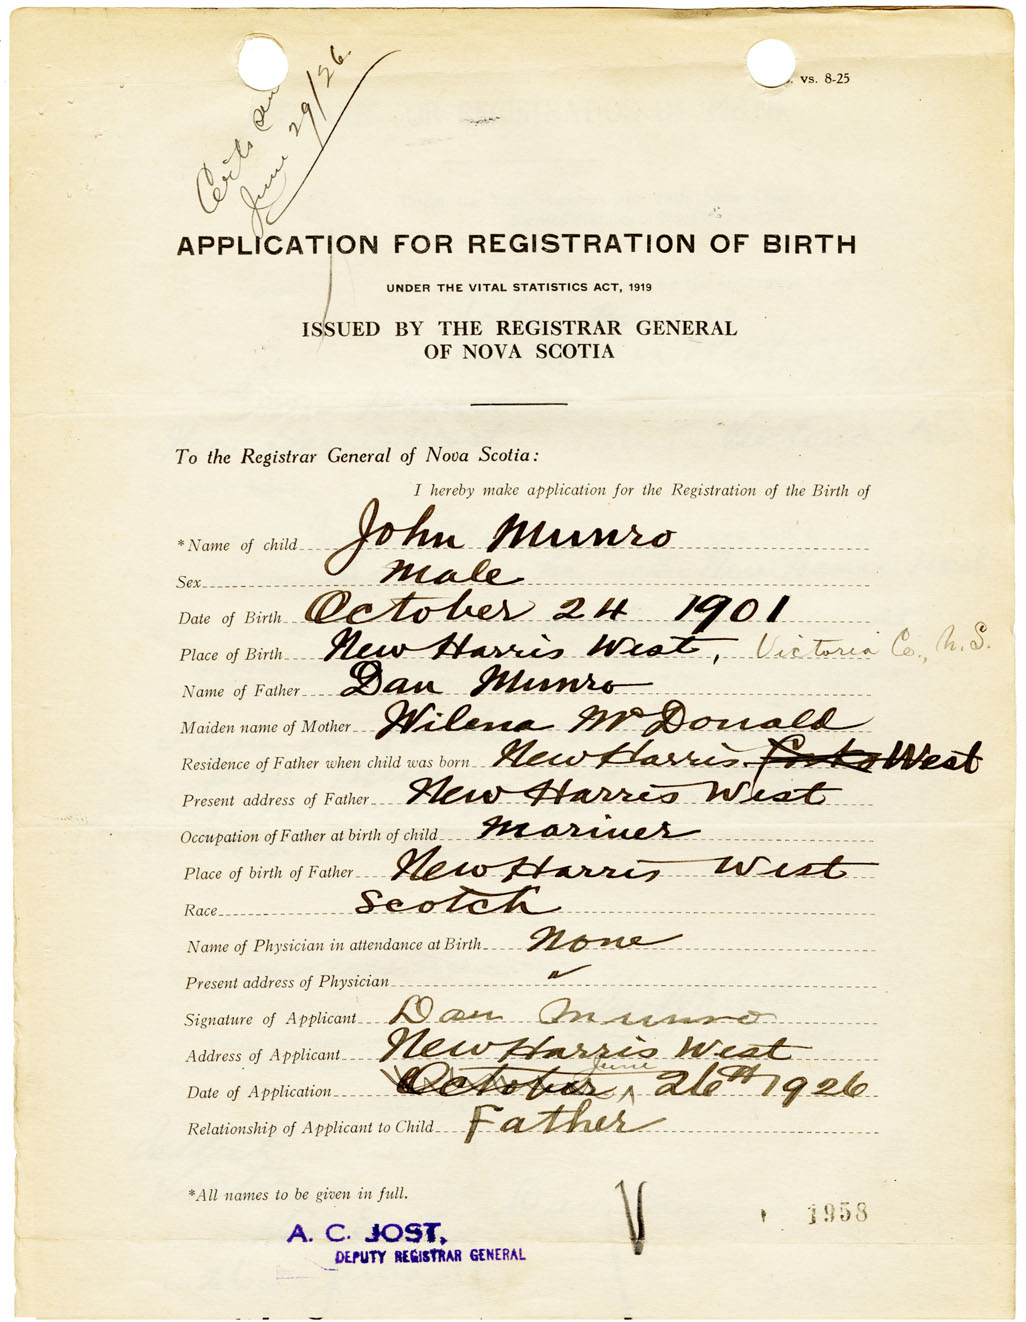 vs. 8-25
Certs
June 29/26.
APPLICATION FOR REGISTRATION OF BIRTH
UNDER THE VITAL STATISTICS ACT, 1919
ISSUED BY THE REGISTRAR GENERAL
OF NOVA SCOTIA
To the Registrar General of Nova Scotia:
I hereby make application for the Registration of the Birth of
*Name of child John Munro
Sex Male
Date of Birth October 24 1901
Place of Birth New Harris West, Victoria Co., N.S.
Name of Father Dan Munro
Maiden name of Mother Wilena McDonald
Residence of Father when child was born New Harris Forks West
Present address of Father New Harris West
Occupation of Father at birth of child Mariner
Place of birth of Father New Harris West
Race Scotch
Name of Physician in attendance at Birth None
Present address of Physician "
Signature of Applicant Dan Munro
Address of Applicant New Harris West
Date of Application October June 26th 1926
Relationship of Applicant to Child Father
*All names to be given in full.
1958
A. C. JOST,
DEPUTY REGISTRAR GENERAL